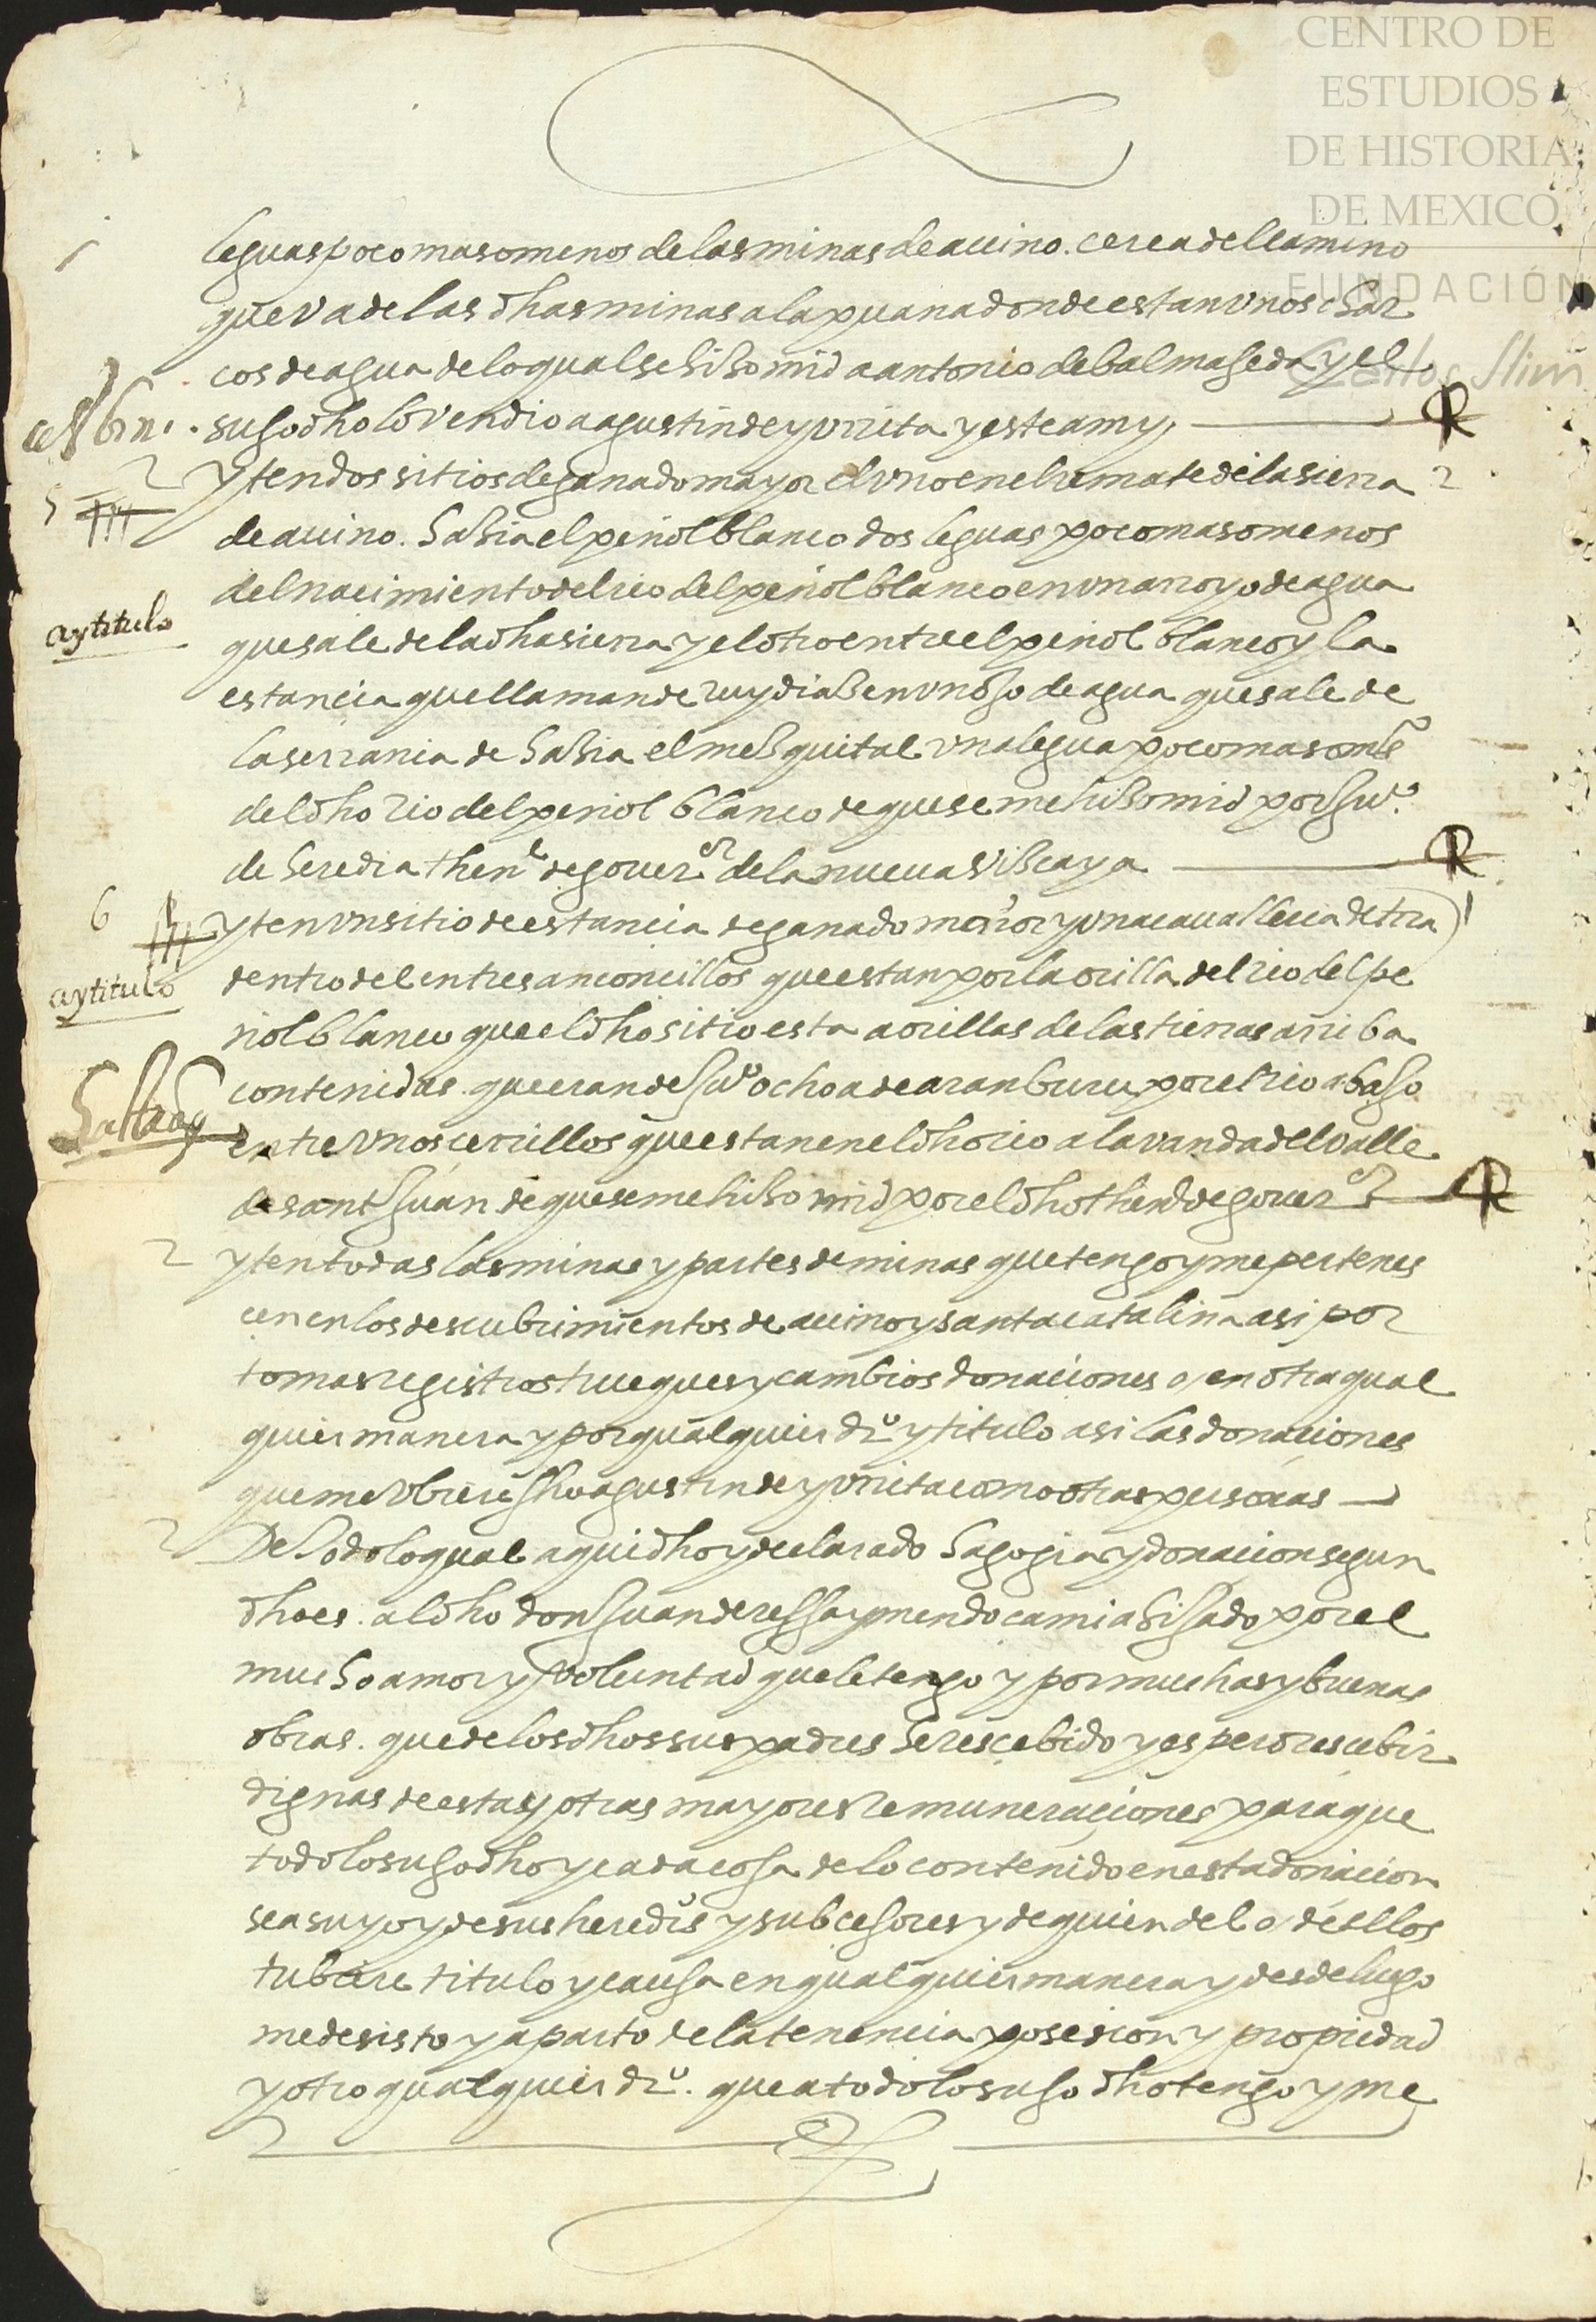 CENTRO DE
ESTUDIOS
DE HISTORIA
DE MEXICO
FUNDACIÓN
Carlos Slim
leguas poco mas o menos de las minas de auino. cerca del camino
que va de las dhas minas a la puana donde estan vnos char
cos de agua de lo qual se hiso mrd a antonio de balmaseda y el
suso dho lo vendio a agustin de yurrita y este a my
2
5
ytem dos sitios de ganado mayor el vno en el rremate de la sierra 2
de auino. hazia el peñol blanco dos leguas poco mas o menos
del nacimiento del rio del peñol blanco en vn arroyo de agua
ay titulo
que sale de la dha sierra y el otro entre el peñol blanco y la
estancia que llaman de rruy dias en vn oJo de agua que sale de
la serrania de hazia el mesquital vna legua poco mas o mes
del dho rio del peñol blanco de que se me hiso mrd por Juo.
de heredia thene de gouer.or de la nueua Viscaya
6
yten vn sitio de estancia de ganado menor y vna caualleria de trra 1
ay titulo
dentro del entre sanconcillos que estan por la orilla del rio del pe
ñol blanco que el dho sitio esta a orillas de las tierras arriba
contenidas. que eran de Juo ochoa de aranburu por el rio abaJo
entre vnos cerrillos que estan en el dho rio a la vanda del valle
de sant Juan de que se me hiso mrd por el dho then de gouer.or
2
yten todas las minas y partes de minas que tengo y me pertenes
cen en los descubrimientos de auino y santa catalina asi por
tomas registros trueques y cambios donaciones o en otra qual
quier manera y por qualquier dro y titulo asi las donaciones
que me vbiere fho agustin de yurrita como otras personas
2
De todo lo qual aqui dho y declarado hago gracia y donacion segun
dho es. al dho don Juan de ressa y mendoca mi ahiJado por el
mucho amor y voluntad que le tengo y por muchas y buenas
obras. que de los dhos sus padres he rescebido y espero rescebir
dignas de estas y otras mayores rremuneraciones para que
todo lo suso dho y cada cosa de lo contenido en esta donacion
sea suyo y de sus heredos y subcesores y de quien del o dellos
tubiere titulo y causa en qualquier manera y desde luego
me desisto y aparto de la tenencia posesion y propiedad
y otro qualquier dro. que a todo lo suso dho tengo y me